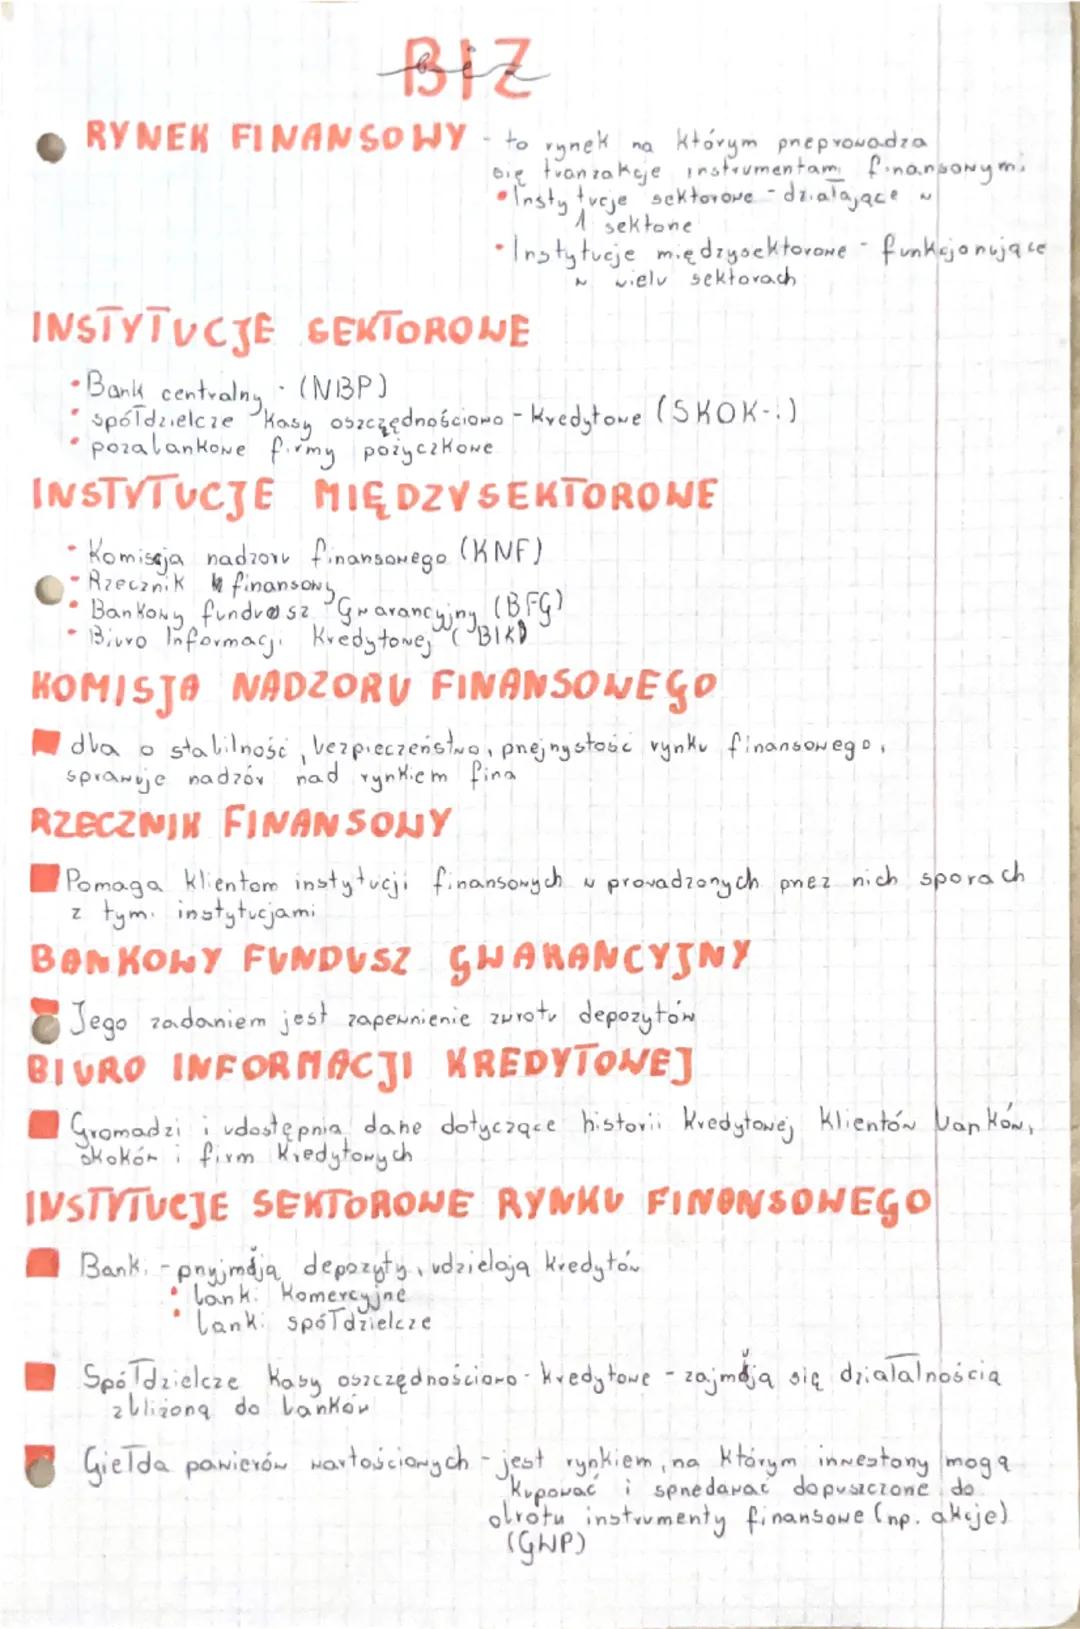 BIZ
RYNEK FINANSOWY - to rynek na którym przeprowadza
się tranzakcje instrumentami finansowymi
• Instytucje sektorowe - działające w
1 sektorze
• Instytucje międzysektorowe - funkcjonujące
w wielu sektorach
INSTYTUCJE SEKTOROWE
• Bank centralny - (NBP)
• spółdzielcze kasy oszczędnościowo - kredytowe (SKOK-i)
• pozabankowe firmy pożyczkowe
INSTYTUCJE MIĘDZYSEKTOROWE
• Komisja nadzoru finansowego (KNF)
• Rzecznik finansowy
• Bankowy fundusz Gwarancyjny (BFG)
• Biuro Informacji Kredytowej (BIK)
KOMISJA NADZORU FINANSOWEGO
dba o stabilność, bezpieczeństwo, przejrzystość rynku finansowego,
sprawuje nadzór nad rynkiem fina
RZECZNIK FINANSOWY
Pomaga klientom instytucji finansowych w prowadzonych przez nich sporach
z tymi instytucjami
BANKOWY FUNDUSZ GWARANCYJNY
Jego zadaniem jest zapewnienie zwrotu depozytów
BIURO INFORMACJI KREDYTOWEJ
Gromadzi i udostępnia dane dotyczące historii kredytowej klientów banków,
skoków i firm kredytowych
INSTYTUCJE SEKTOROWE RYNKU FINANSOWEGO
Banki - przyjmują depozyty, udzielają kredytów
• banki komercyjne
• banki spółdzielcze
Spółdzielcze kasy oszczędnościowo - kredytowe - zajmują się działalnością
zbliżoną do banków
Giełda papierów wartościowych - jest rynkiem, na którym inwestorzy mogą
kupować i sprzedawać dopuszczone do
obrotu instrumenty finansowe (np. akcje)
(GWP)